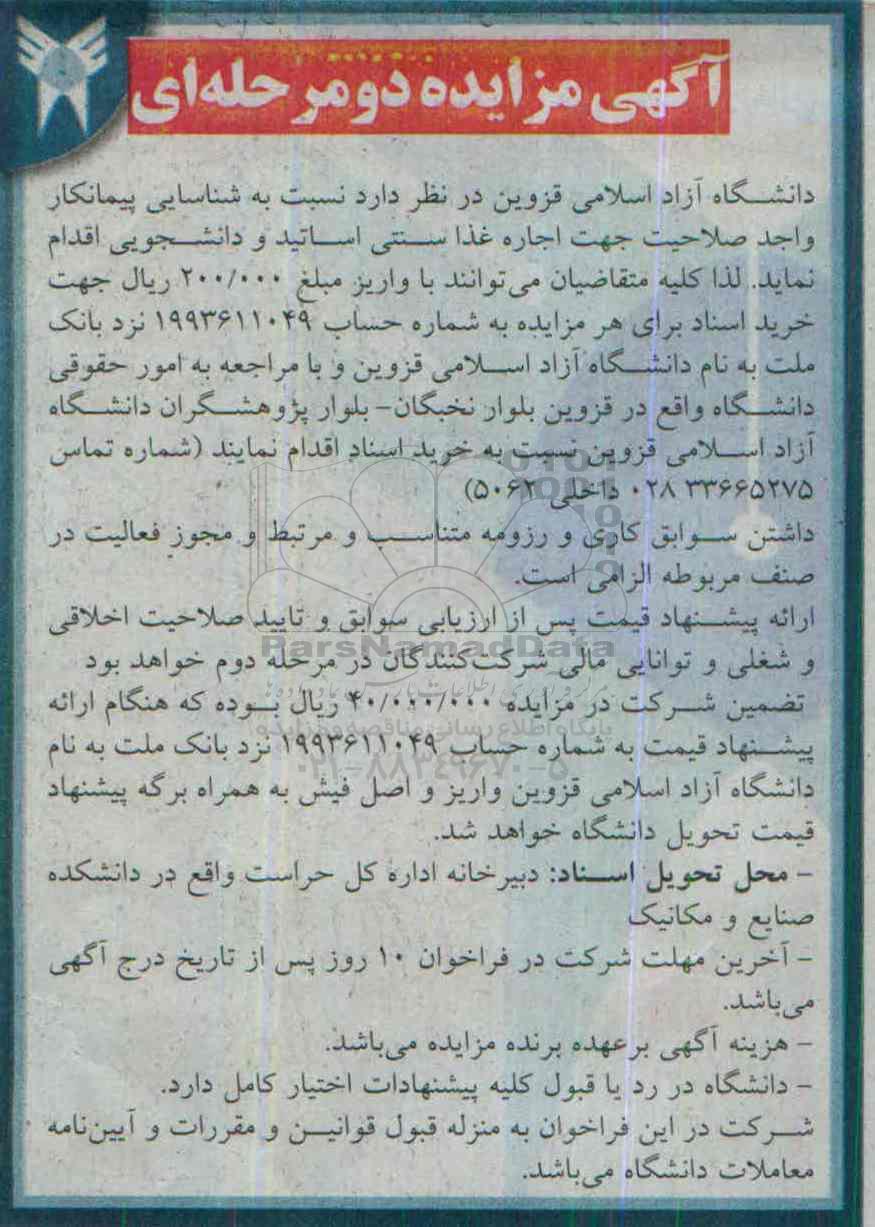 آگهی مزایده دو مرحله‌ای
دانشگاه آزاد اسلامی قزوین در نظر دارد نسبت به شناسایی پیمانکار
واجد صلاحیت جهت اجاره غذا سنتی اساتید و دانشجویی اقدام
نماید. لذا کلیه متقاضیان می‌توانند با واریز مبلغ ۲۰۰/۰۰۰ ریال جهت
خرید اسناد برای هر مزایده به شماره حساب ۱۹۹۳۶۱۱۰۴۹ نزد بانک
ملت به نام دانشگاه آزاد اسلامی قزوین و با مراجعه به امور حقوقی
دانشگاه واقع در قزوین بلوار نخبگان- بلوار پژوهشگران دانشگاه
آزاد اسلامی قزوین نسبت به خرید اسناد اقدام نمایند (شماره تماس
۳۳۶۶۵۲۷۵ ۰۲۸ داخلی ۵۰۶۲)
داشتن سوابق کاری و رزومه متناسب و مرتبط و مجوز فعالیت در
صنف مربوطه الزامی است.
ارائه پیشنهاد قیمت پس از ارزیابی سوابق و تایید صلاحیت اخلاقی
و شغلی و توانایی مالی شرکت‌کنندگان در مرحله دوم خواهد بود
تضمین شرکت در مزایده ۴۰/۰۰۰/۰۰۰ ریال بوده که هنگام ارائه
پیشنهاد قیمت به شماره حساب ۱۹۹۳۶۱۱۰۴۹ نزد بانک ملت به نام
دانشگاه آزاد اسلامی قزوین واریز و اصل فیش به همراه برگه پیشنهاد
قیمت تحویل دانشگاه خواهد شد.
- محل تحویل اسناد: دبیرخانه اداره کل حراست واقع در دانشکده
صنایع و مکانیک
- آخرین مهلت شرکت در فراخوان ۱۰ روز پس از تاریخ درج آگهی
می‌باشد.
- هزینه آگهی بر عهده برنده مزایده می‌باشد.
- دانشگاه در رد یا قبول کلیه پیشنهادات اختیار کامل دارد.
شرکت در این فراخوان به منزله قبول قوانین و مقررات و آیین‌نامه
معاملات دانشگاه می‌باشد.
ParsNamadData
پایگاه اطلاع رسانی مناقصه و مزایده
۰۲۱-۸۸۳۴۹۶۷۰-۵